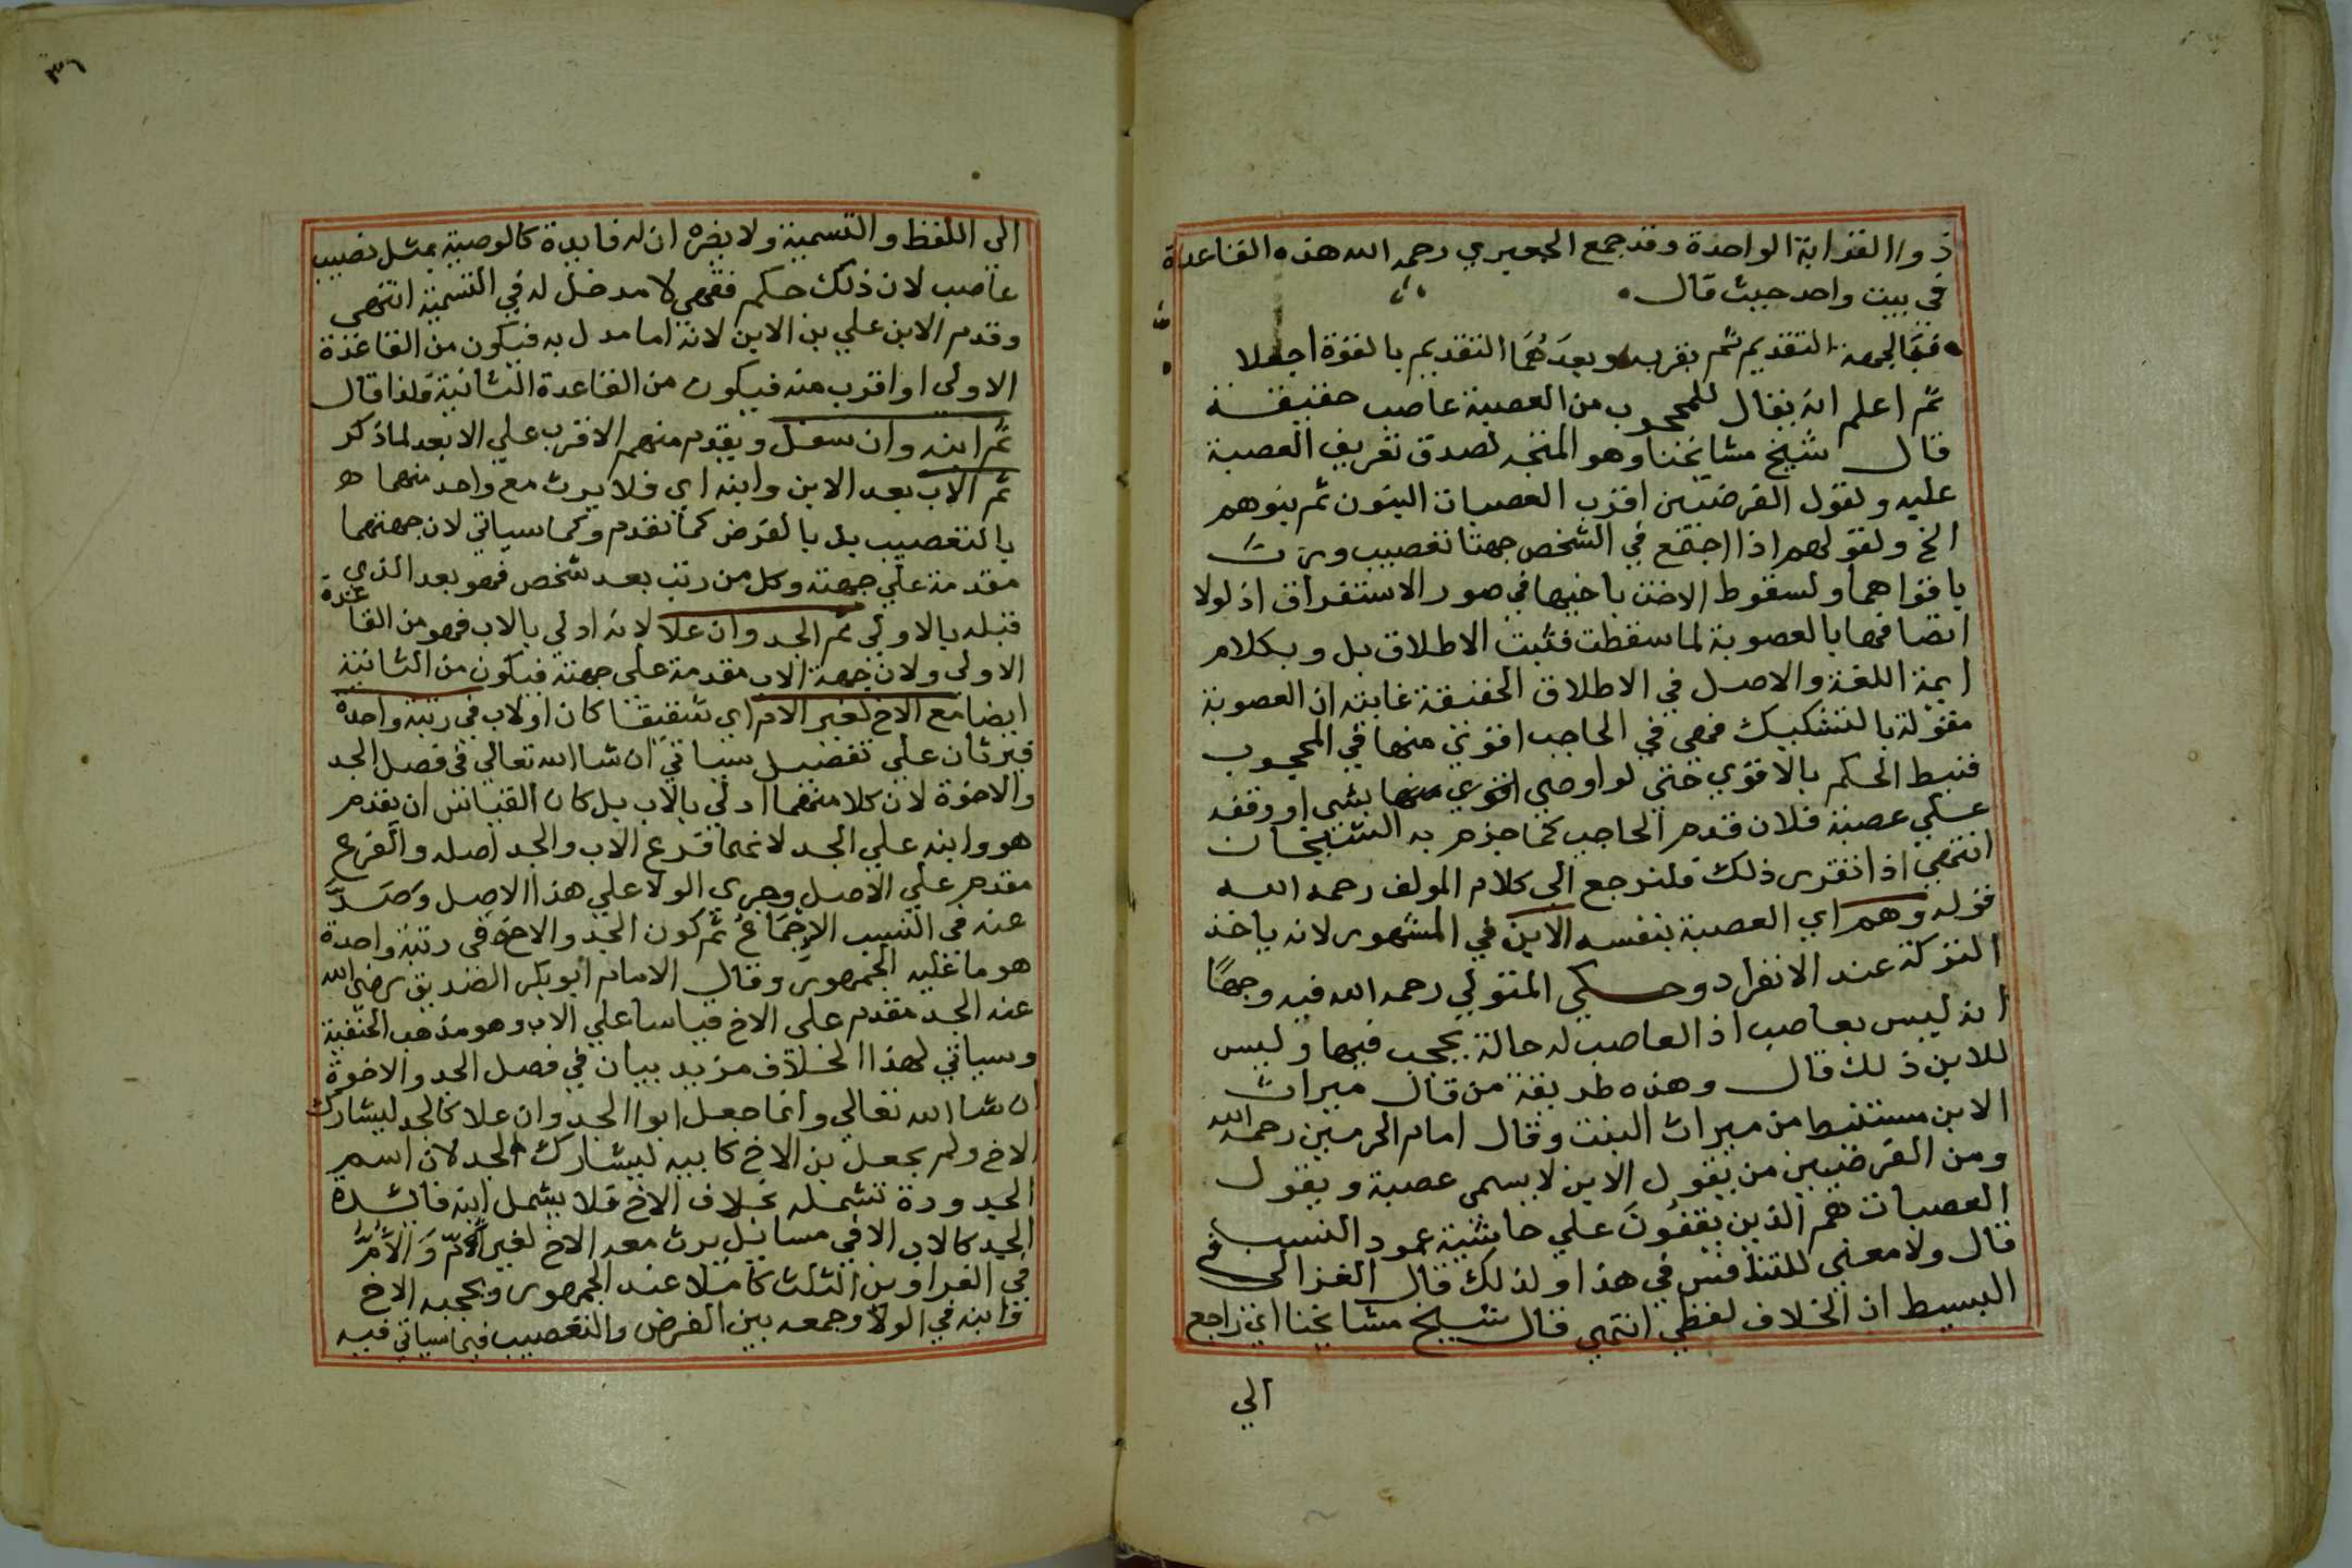 ذووا القرابة الواحدة وقد جمع الجعبري رحمه الله هذه القاعدة
في بيت واحد حيث قال
فبالجهة التقديم ثم بقربه وبعدَهُمَا التقديم بالقوة اجعلا
ثم اعلم انه يقال للمحجوب من العصبة عاصب حقيقة
قال شيخ مشايخنا وهو المتجه لصدق تعريف العصبة
عليه ولقول الفرضيين اقرب العصبات البنون ثم بنوهم
الخ ولقولهم اذا اجتمع في الشخص جهتا تعصيب ورث
باقواهما ولسقوط الاخت باخيها في صور الاستغراق اذ لولا
اتصافها بالعصوبة لما سقطت فثبت الاطلاق بل وبكلام
ايمة اللغة والاصل في الاطلاق الحقيقة غايته ان العصوبة
مقولة بالتشكيك فهي في الحاجب اقوي منها في المحجوب
فنيط الحكم بالاقوي حتي لو اوصي بشي او وقفه
علي عصبة فلان قدم الحاجب كما جزم به الشيخان
انتهي اذا تقرر ذلك فلنرجع الي كلام المولف رحمه الله
قوله وهم اي العصبة بنفسه الابن في المشهور لانه ياخذ
التركة عند الانفراد وحكي المتولي رحمه الله فيه وجهًا
انه ليس بعاصب اذ العاصب له حالة يحجب فيها وليس
للابن ذلك قال وهذه طريقة من قال ميراث
الابن مستنبط من ميراث البنت وقال امام الحرمين رحمه الله
ومن الفرضيين من يقول الابن لا يسمي عصبة ويقول
العصبات هم الذين يقفون علي حاشية عمود النسب
قال ولا معني للتنافس في هذا ولذلك قال الغزالي في
البسيط ان الخلاف لفظي انتهي قال شيخ مشايخنا اي راجع
الي
٣٦
الي اللفظ والتسمية ولا يضره ان له فايدة كالوصية بمثل نصيب
عاصب لان ذلك حكم فقهي لا مدخل له في التسمية انتهي
وقدم الابن علي بن الابن لانه اما مدل به فيكون من القاعدة
الاولي او اقرب منه فيكون من القاعدة الثانية فلذا قال
ثم ابنه وان سفل ويقدم منهم الاقرب علي الابعد لما ذكر
ثم الاب بعد الابن وابنه اي فلا يرث مع واحد منهما
بالتعصيب بل بالفرض كما تقدم وكما سياتي لان جهتهما
مقدمة علي جهته وكل من رتب بعد شخص فهو بعد الذي
قبله بالاولي ثم الجد وان علا لانه ادلي بالاب فهو من القاعدة
الاولي ولان جهة الاب مقدمة علي جهته فيكون من الثانية
ايضا مع الاخ لغير الام اي شقيقا كان او لاب في رتبة واحدة
فيرثان علي تفصيل سياتي ان شا الله تعالي في فصل الجد
والاخوة لان كلا منهما ادلي بالاب بل كان القياس ان يقدم
هو وابنه علي الجد لانهما فرع الاب والجد اصله والفرع
مقدم علي الاصل وجري الولا علي هذا الاصل وَصَدَّ
عنه في النسب الاِجْمَاعُ ثم كون الجد والاخ في رتبة واحدة
هو ما عليه الجمهور وقال الامام ابو بكر الصديق رضي الله
عنه الجد مقدم علي الاخ قياسا علي الاب وهو مذهب الحنفية
وسياتي لهذا الخلاف مزيد بيان في فصل الجد والاخوة
ان شا الله تعالي وانما جعل ابوا الجد وان علا كالجد ليشارك
الاخ ولم يجعل بن الاخ كابيه ليشارك الجد لان اسم
الجدودة تشمله بخلاف الاخ فلا يشمل ابنه فايدة
الجد كالاب الا في مسايل يرث معه الاخ لغير الامّ وَالاُمُّ
في الغراوين الثلث كاملا عند الجمهور ويحجبه الاخ
وابنه في الولا وجمعه بين الفرض والتعصيب فيما سياتي فيه